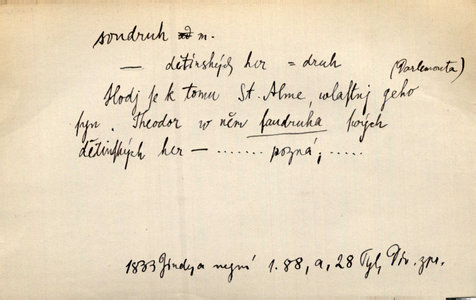 soudruh m.
— dětinských her = druh
(Parlemonta)
Hodj se k tomu St. Alme, wlastnj geho
syn. Theodor w něm saudruha swých
dětinských her — ....... pozná; .....
1833 Gindy a nynj 1. 88, a, 28 Tyl, Div. zpr.